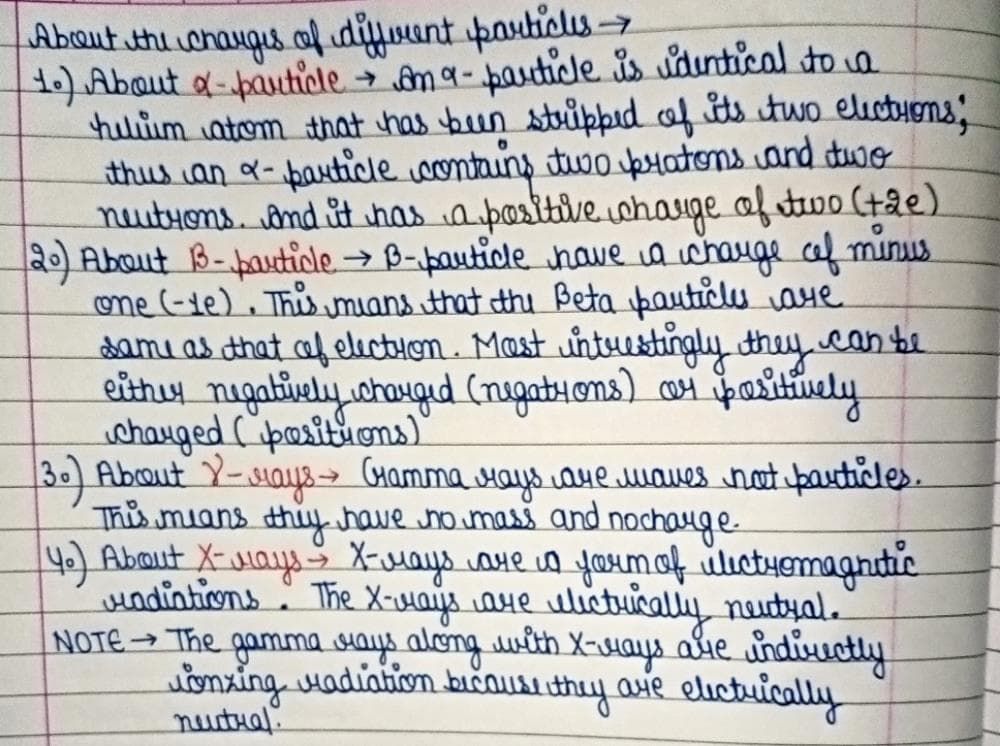 About the charges of different particles →
1.) About α-particle → An α-particle is identical to a
helium atom that has been stripped of its two electrons;
thus an α-particle contains two protons and two
neutrons. And it has a positive charge of two (+2e)
2.) About β-particle → β-particle have a charge of minus
one (-1e). This means that the Beta particles are
same as that of electron. Most interestingly they can be
either negatively charged (negatrons) or positively
charged (positrons)
3.) About γ-rays → Gamma rays are waves not particles.
This means they have no mass and no charge.
4.) About X-rays → X-rays are a form of electromagnetic
radiations. The X-rays are electrically neutral.
NOTE → The gamma rays along with X-rays are indirectly
ionxing radiation because they are electrically
neutral.